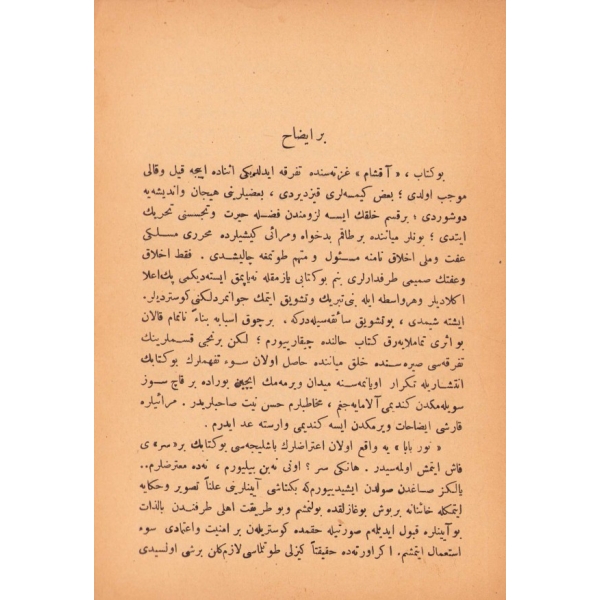 بر ایضاح
بوکتاب ، « آقشام » غزته‌سنده تفرقه ایدلدیکی اثناده اییجه قیل وقالی
موجب اولدی ؛ بعض کیمسه‌لری قیزدیردی ، بعضیلرینی هیجان واندیشه‌یه
دوشوردی ؛ برقسم خلقك ایسه لزومندن فضله حیرت وتجسسنی تحریك
ایتدی ؛ بونلر میاننده برطاقم بدخواه ومرائی کیشیلرده محرری مسلکی
عفت وملی اخلاق نامنه مسئول و متهم طوتمغه چالیشدی . فقط اخلاق
وعفتك صمیمی طرفدارلری بنم بوکتابی یازمقله نه‌یاپمق ایسته‌دیکمی پك‌اعلا
اکلادیلر وهرواسطه ایله بنی‌تبریك وتشویق ایتمك جوانمردلکنی‌کوستردیلر.
ایشته شیمدی ، بوتشویق سائقه‌سیله‌درکه . برچوق اسبابه بناءً ناتمام قالان
بو اثری تماملایه‌رق کتاب حالنده چیقارییورم ؛ لکن برنجی قسملرینك
تفرقه‌سی صیره‌سنده خلق میاننده حاصل اولان سوء تفهملرك بوکتابك
انتشاریله تکرار اویانمه‌سنه میدان ویرمه‌مك ایچین بوراده بر قاچ سوز
سویله‌مکدن کندیمی آلامایه‌جغم ، مخاطبلرم حسن نیت صاحبلریدر . مرائیلره
قارشی ایضاحات ویرمکدن ایسه کندیمی وارسته عد ایدرم .
« نور بابا » یه واقع اولان اعتراضلرك باشلیجه‌سی بوکتابك بر«سر» ی
فاش ایتمش اولمه‌سیدر . هانکی سر ؟ اونی نه‌بن بیلیورم ، نه‌ده معترضلرم..
یالکز صاغدن صولدن ایشیدییورم‌که بکتاشی آیینلرینی علناً تصویر وحکایه
ایتمکله خائنانه بربوش بوغازلقده بولنمشم وبو طریقت اهلی طرفندن بالذات
بوآیینلره قبول ایدیلمم صورتیله حقمده کوستریلن بر امنیت واعتمادی سوء
استعمال ایتمشم. اکراورته‌ده حقیقتاً کیزلی طوتلماسی لازمکلن برشی اولسیدی